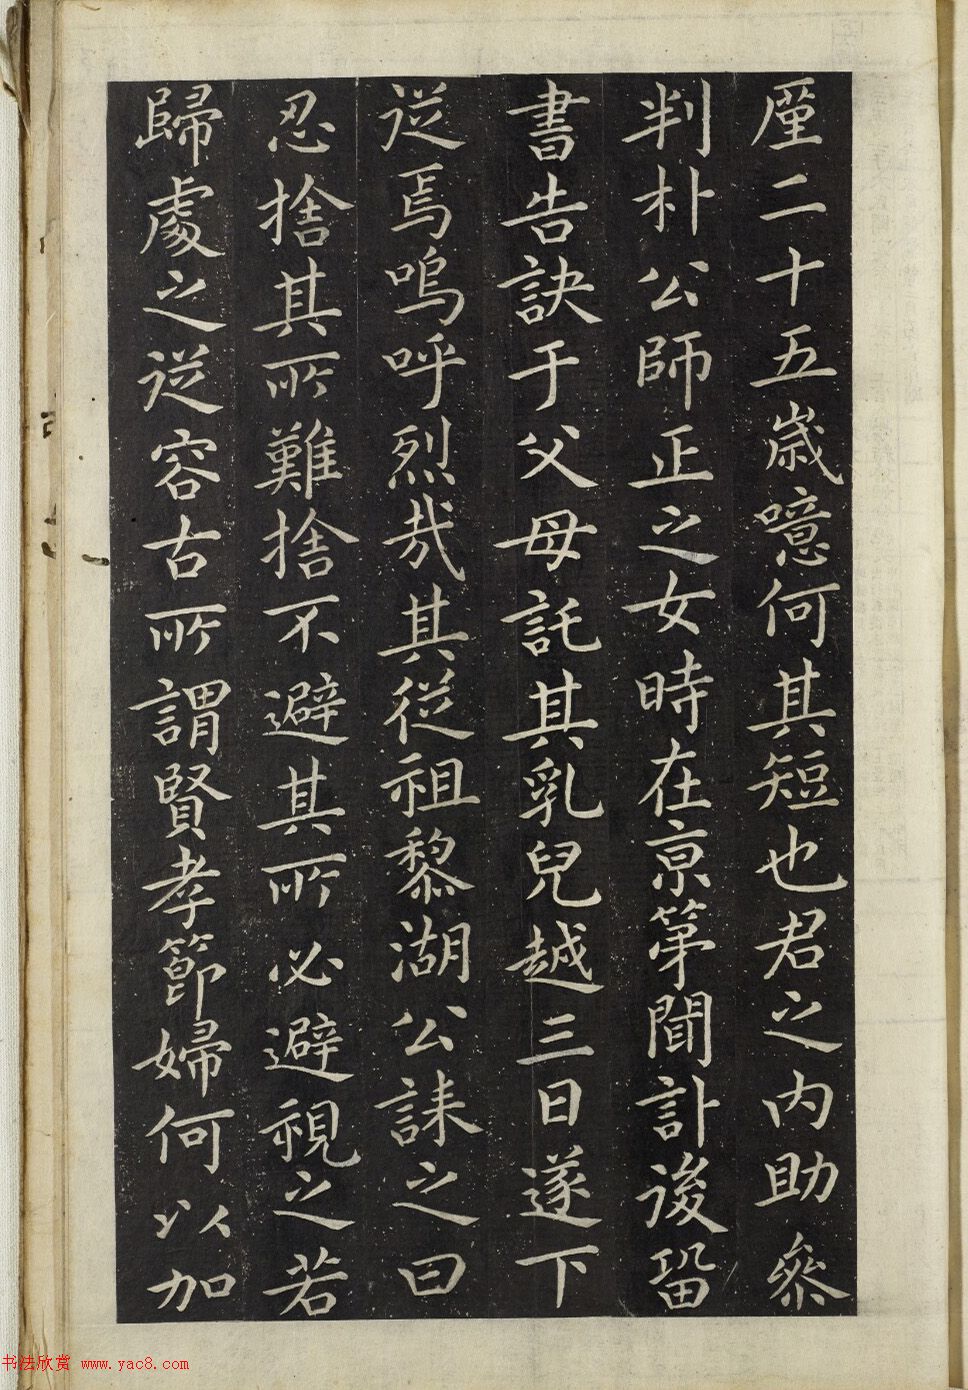 厪二十五歲噫何其短也君之内助叅
判朴公師正之女時在京第聞訃後留
書告訣于父母託其乳兒越三日遂下
從焉嗚呼烈哉其從祖黎湖公誄之曰
忍捨其所難捨不避其所必避視之若
歸處之從容古所謂賢孝節婦何以加
书法欣赏 www.yac8.com